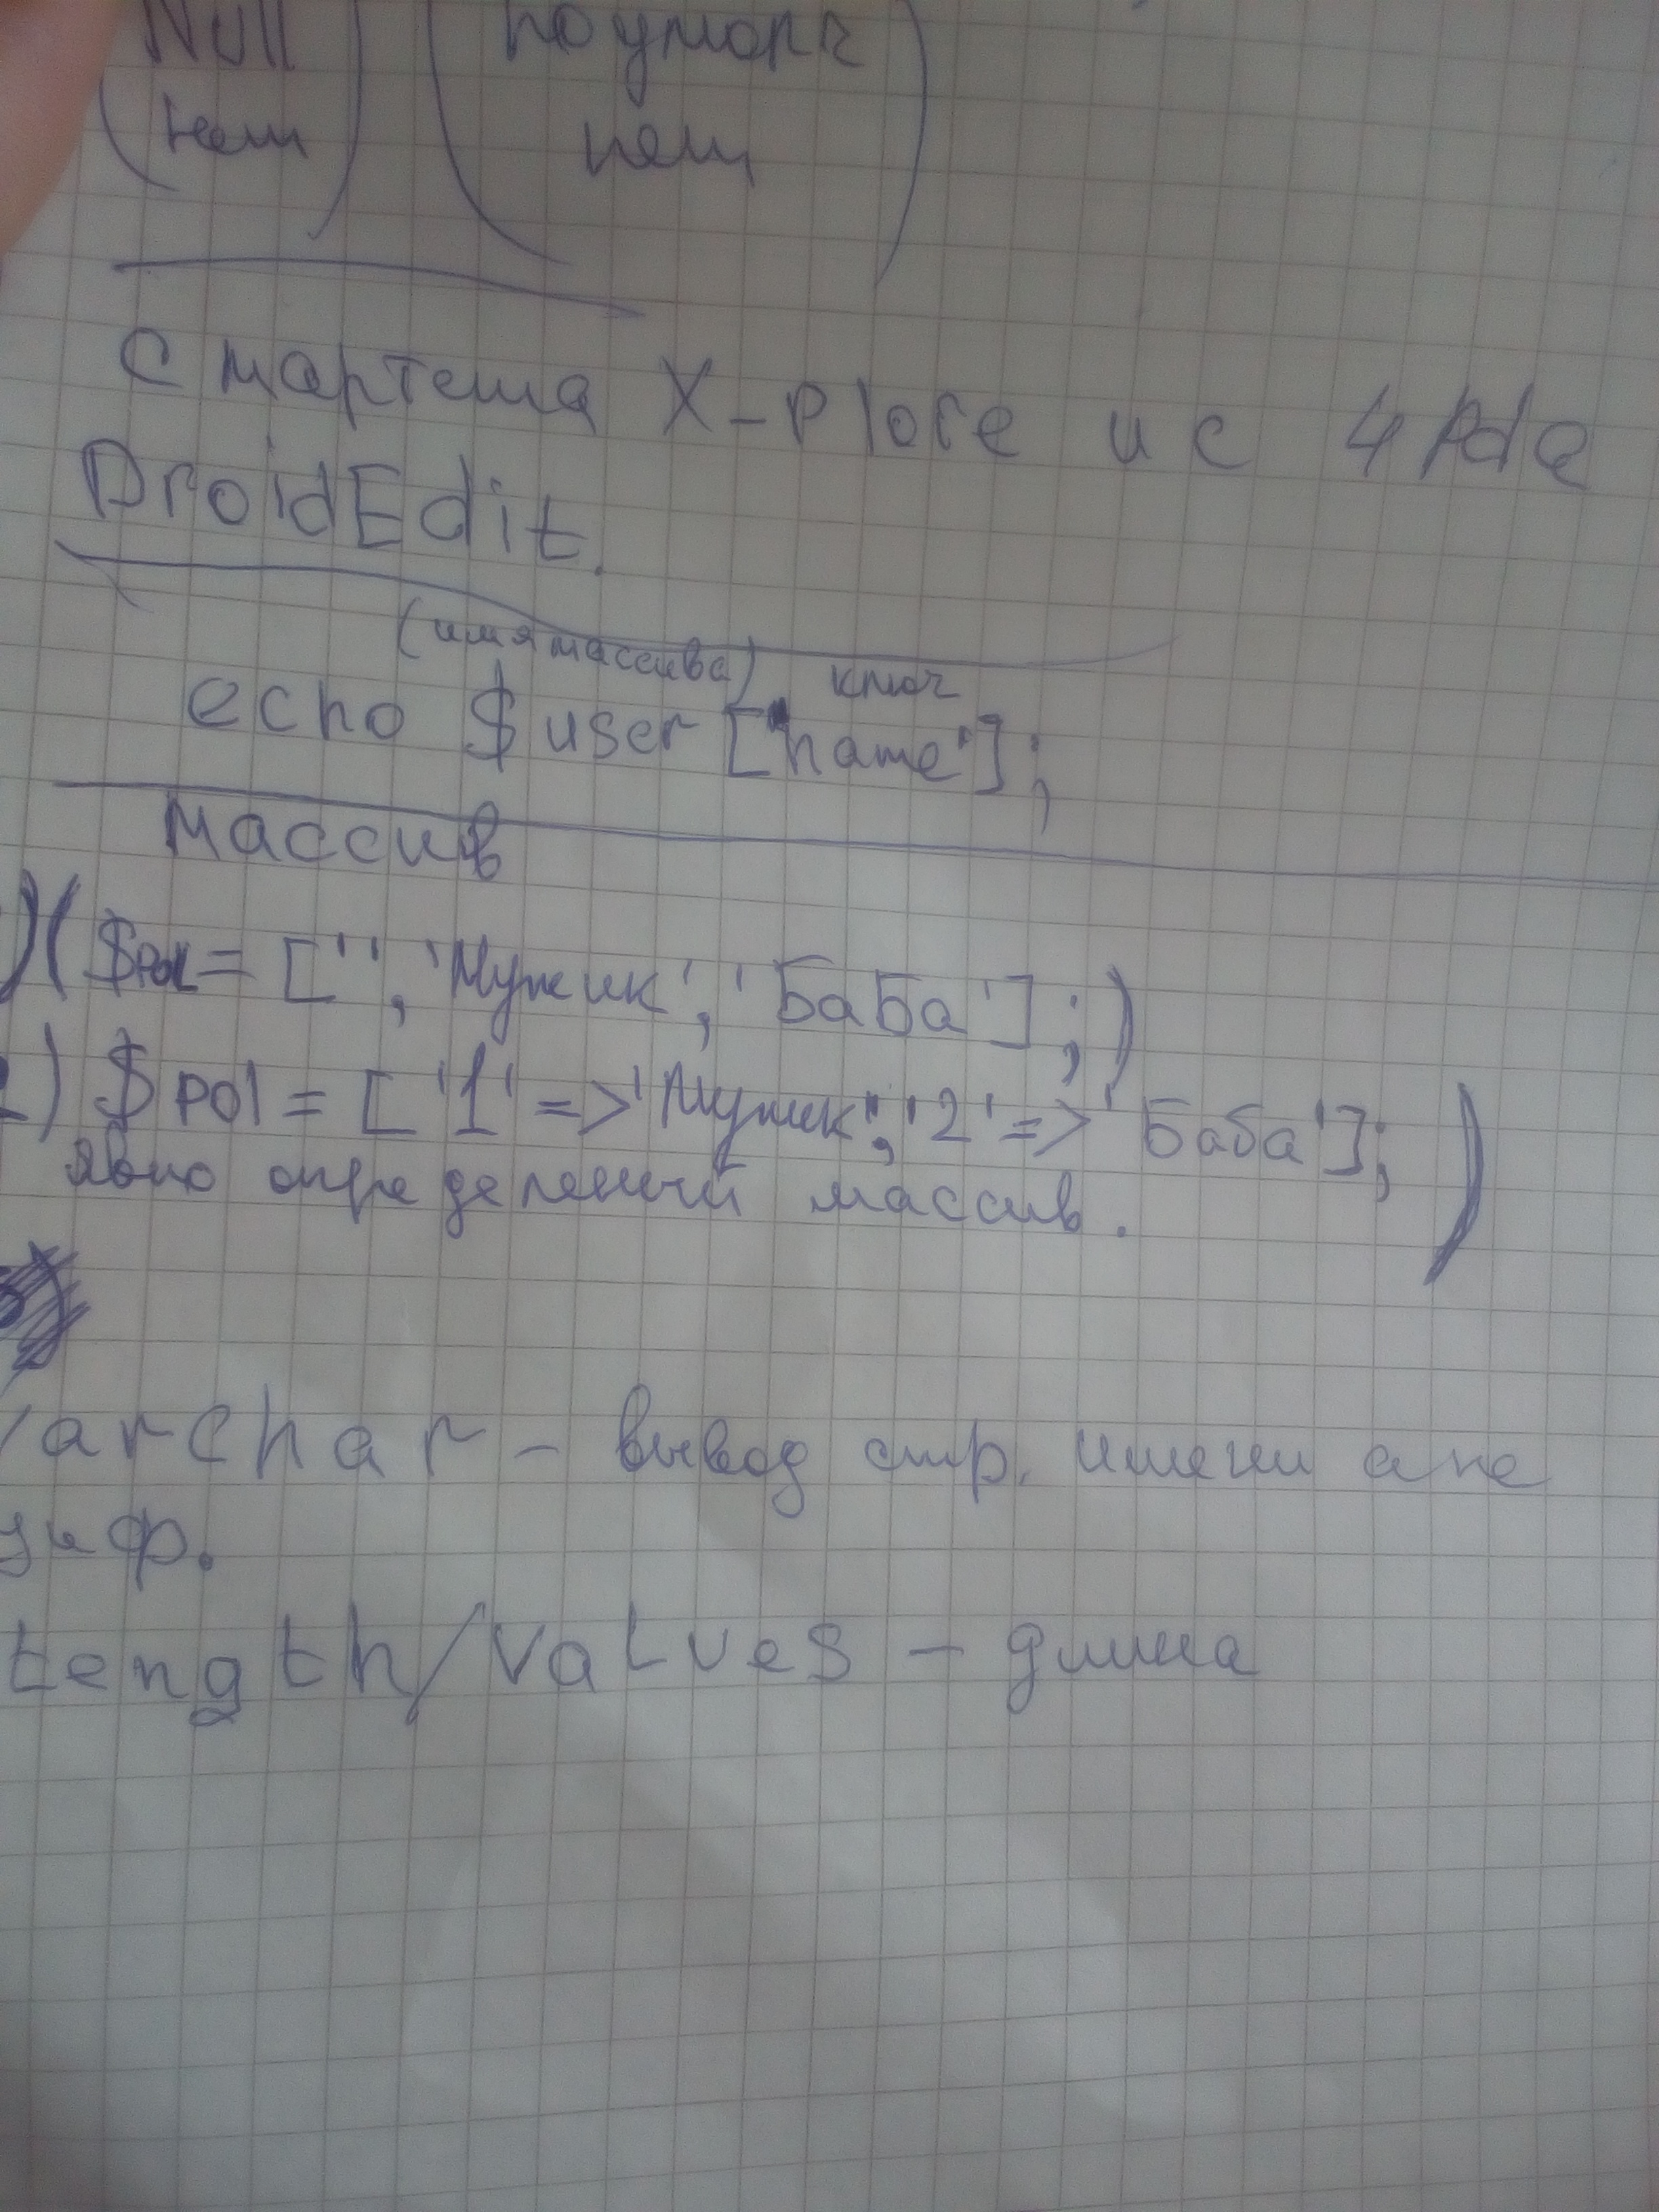 Null поумолч
нет нет
С мартета X-Plore и с 4Pda
DroidEdit.
(имя массива) ключ
echo $user['name'];
массив
) ($pol = ['', 'Мужик', 'БаБа'];)
2) $pol = ['1' => 'Мужик', '2' => 'Баба'];)
явно определеный массив.
Varchar - вывод стр. имени а не
циф.
Length/Values - длина